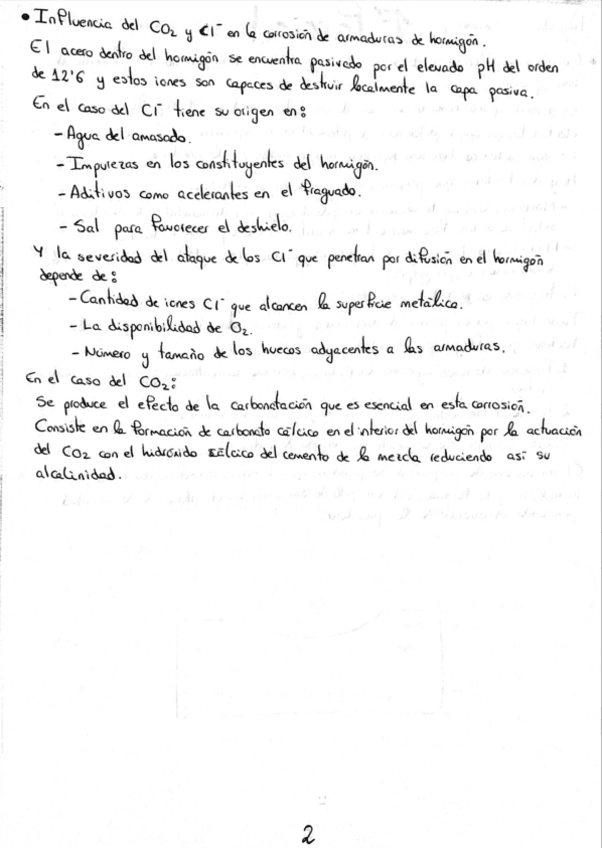 • Influencia del CO₂ y Cl⁻ en la corrosión de armaduras de hormigón.
El acero dentro del hormigón se encuentra pasivado por el elevado pH del orden
de 12'6 y estos iones son capaces de destruir localmente la capa pasiva.
En el caso del Cl⁻ tiene su origen en:
- Agua del amasado.
- Impurezas en los constituyentes del hormigón.
- Aditivos como acelerantes en el fraguado.
- Sal para favorecer el deshielo.
Y la severidad del ataque de los Cl⁻ que penetran por difusión en el hormigón
depende de:
- Cantidad de iones Cl⁻ que alcancen la superficie metálica.
- La disponibilidad de O₂.
- Número y tamaño de los huecos adyacentes a las armaduras.
En el caso del CO₂:
Se produce el efecto de la carbonatación que es esencial en esta corrosión.
Consiste en la formación de carbonato cálcico en el interior del hormigón por la actuación
del CO₂ con el hidróxido cálcico del cemento de la mezcla reduciendo así su
alcalinidad.
2